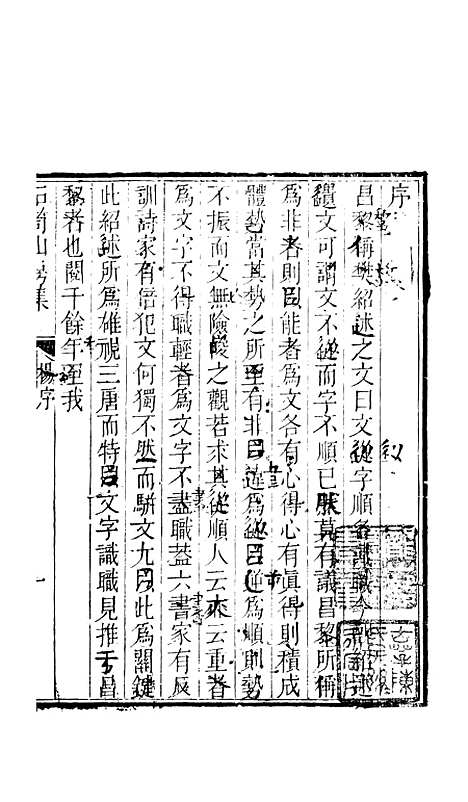 序
昌黎稱樊紹述之文曰文從字順各識職今觀紹述
遺文可謂文不從而字不順已然莫有議昌黎所稱
為非者則能者為文各有心得心有真得則積成
體勢當其勢之所至有非逆為從逆為順則勢
不振而文無險峻之觀若求其從順人云亦云重者
為文字不得職輕者為文字不盡職蓋六書家有反
訓詩家有倍犯文何獨不然而駢文尤此為關鍵
此紹述所為雄視三唐而特文字識職見推于昌
黎者也閱千餘年至我
石笥山房集
楊序
一